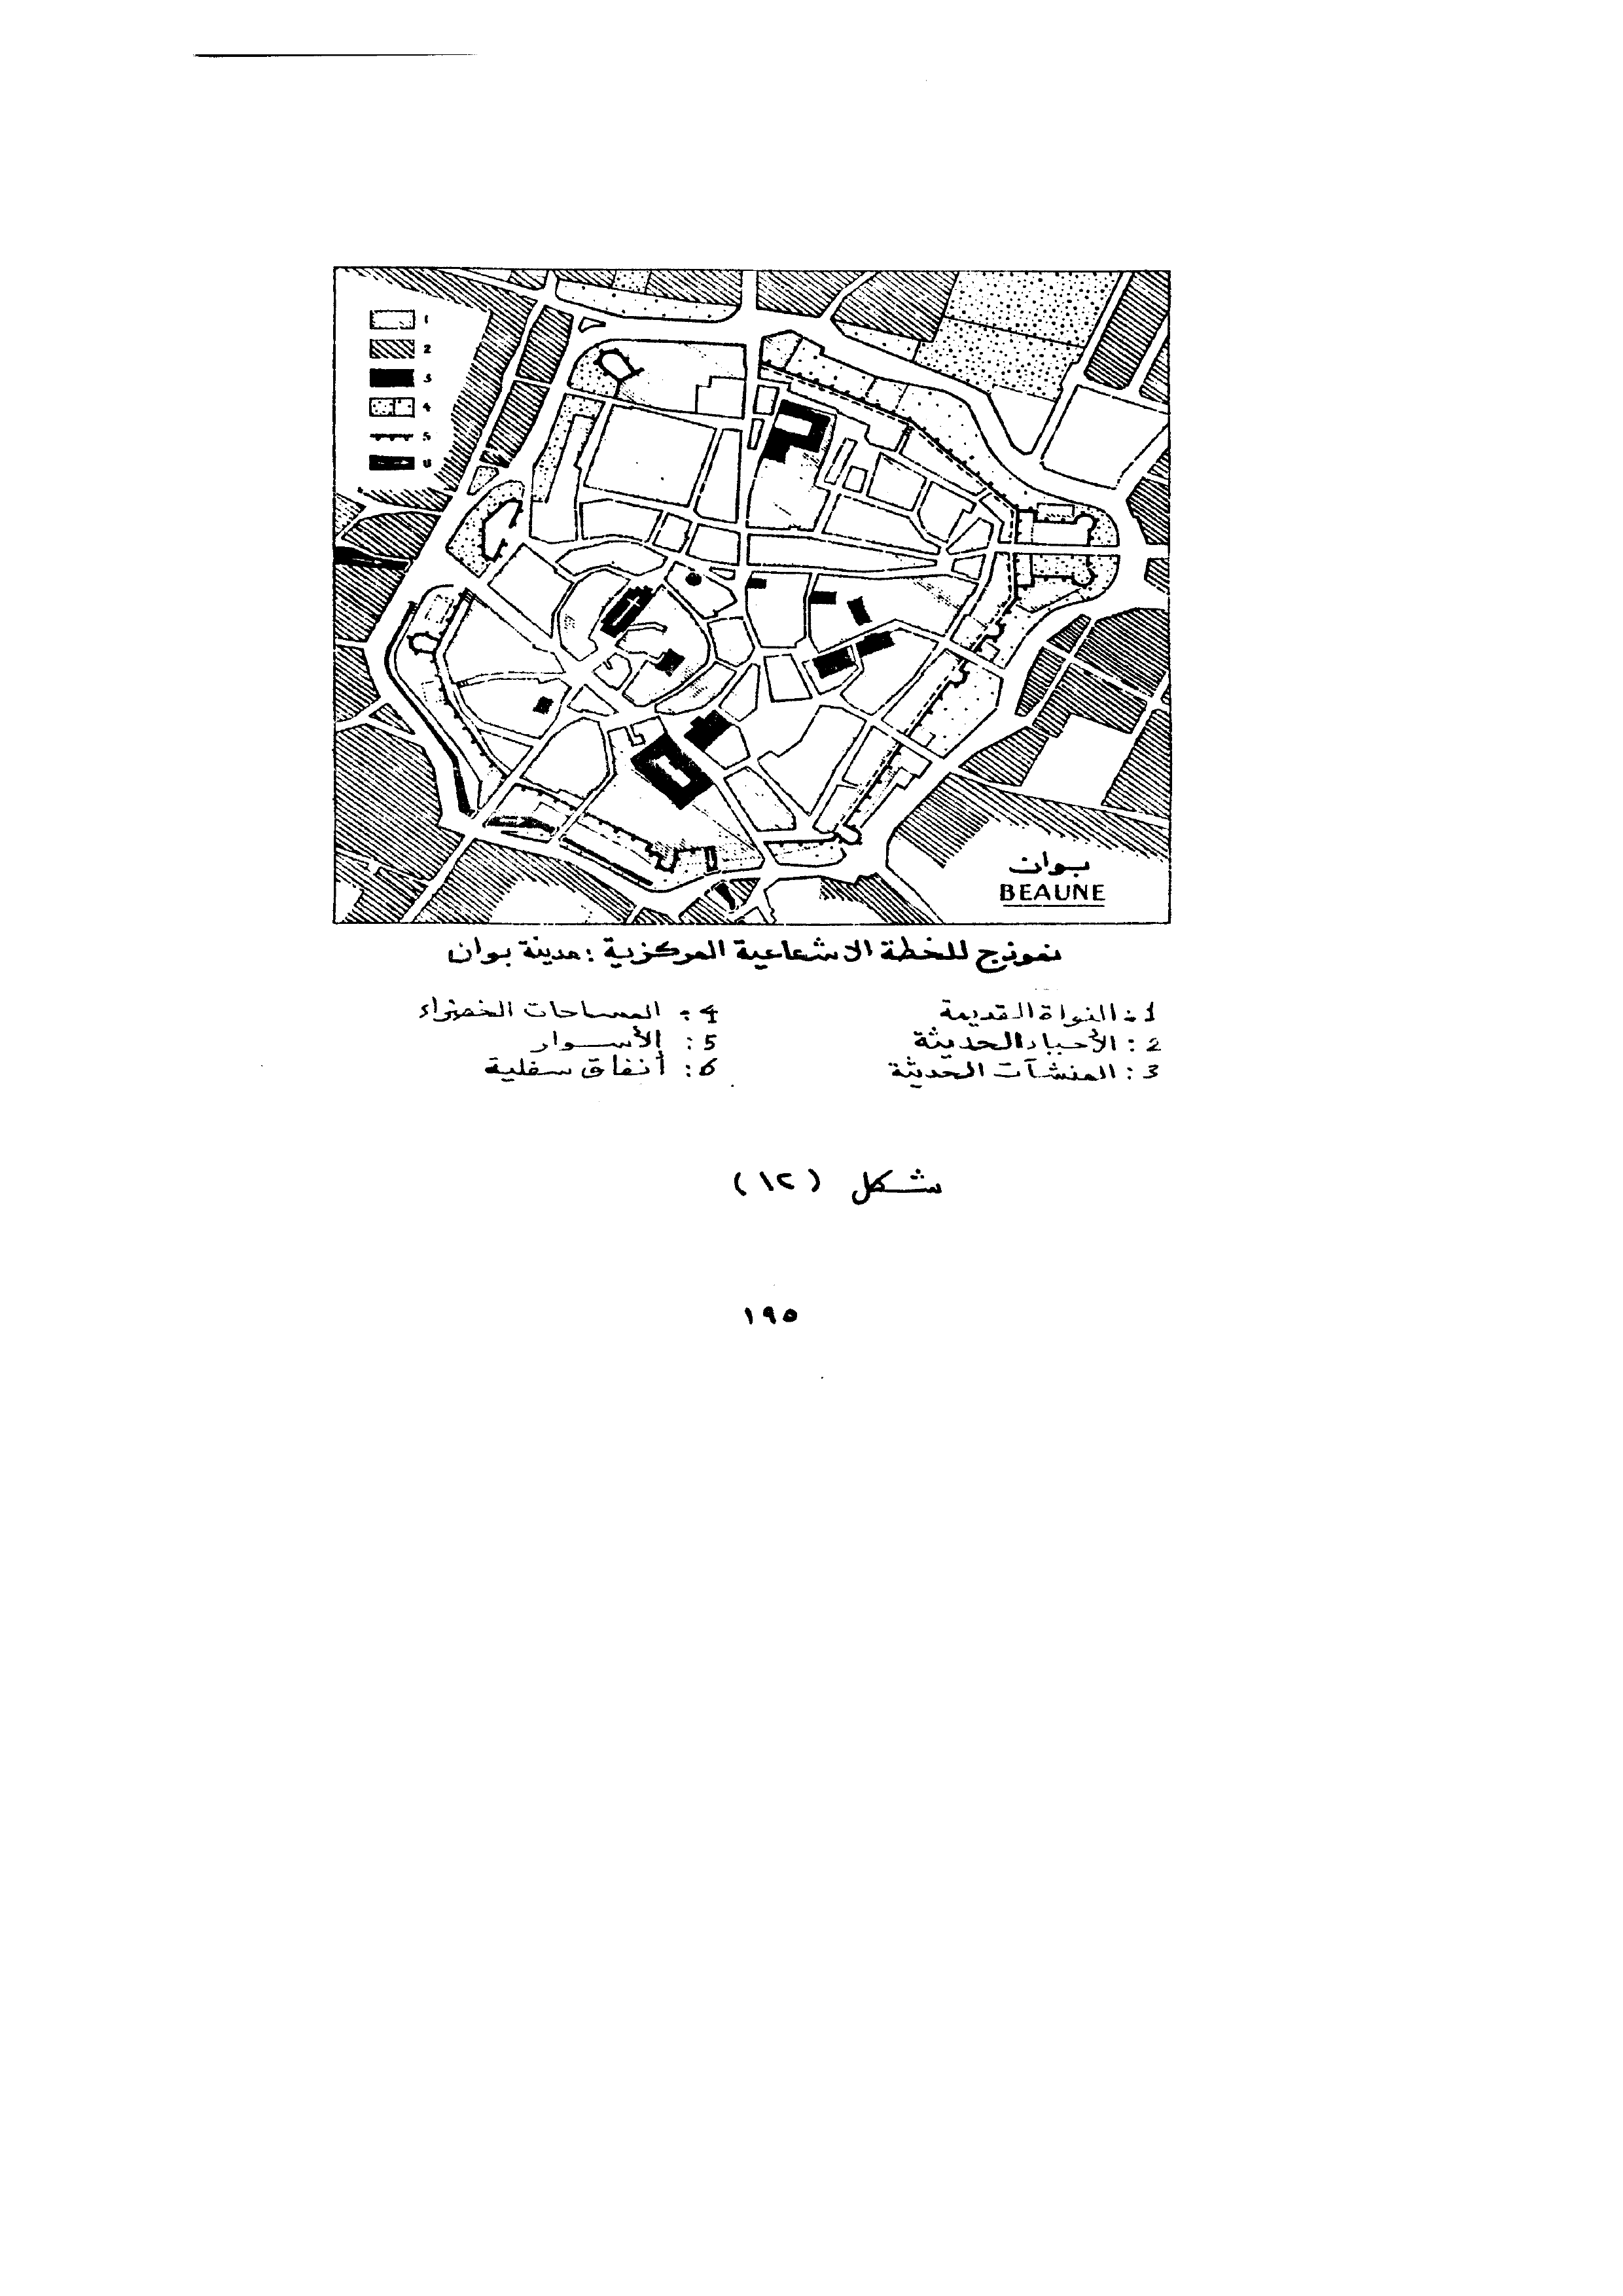 1
2
3
4
5
6
بوان
BEAUNE
نموذج للخطة الاشعاعية المركزية : مدينة بوان
1 : النواة القديمة
2 : الأحياء الحديثة
3 : المنشآت الحديثة
4 : المساحات الخضراء
5 : الأسوار
6 : أنفاق سفلية
شكل (١٢)
١٩٥